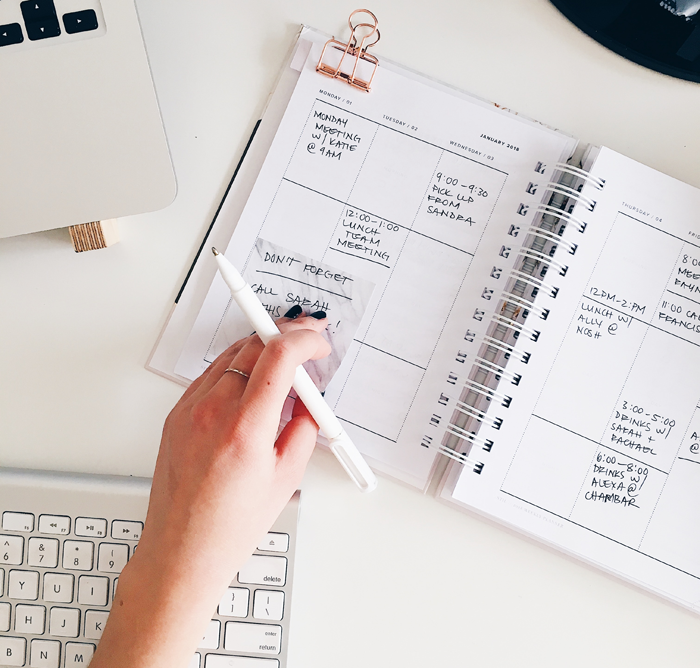 JANUARY 2018
MONDAY / 01
MONDAY
MEETING
W/ KATIE
@ 9AM
TUESDAY / 02
12:00-1:00
LUNCH
TEAM
MEETING
WEDNESDAY / 03
9:00-9:30
PICK UP
FROM
SANDRA
DON'T FORGET
CALL SARAH
THIS
!
THURSDAY / 04
12PM-2PM
LUNCH W/
ALLY @
NOSH
3:00-5:00
DRINKS W/
SARAH +
RACHAEL
6:00-8:00
DRINKS W/
ALEXA @
CHAMBAR
11:00
6
& 7
* 8
( 9
delete
Y
U
I
H
J
K
B
N
M
enter
return
shift